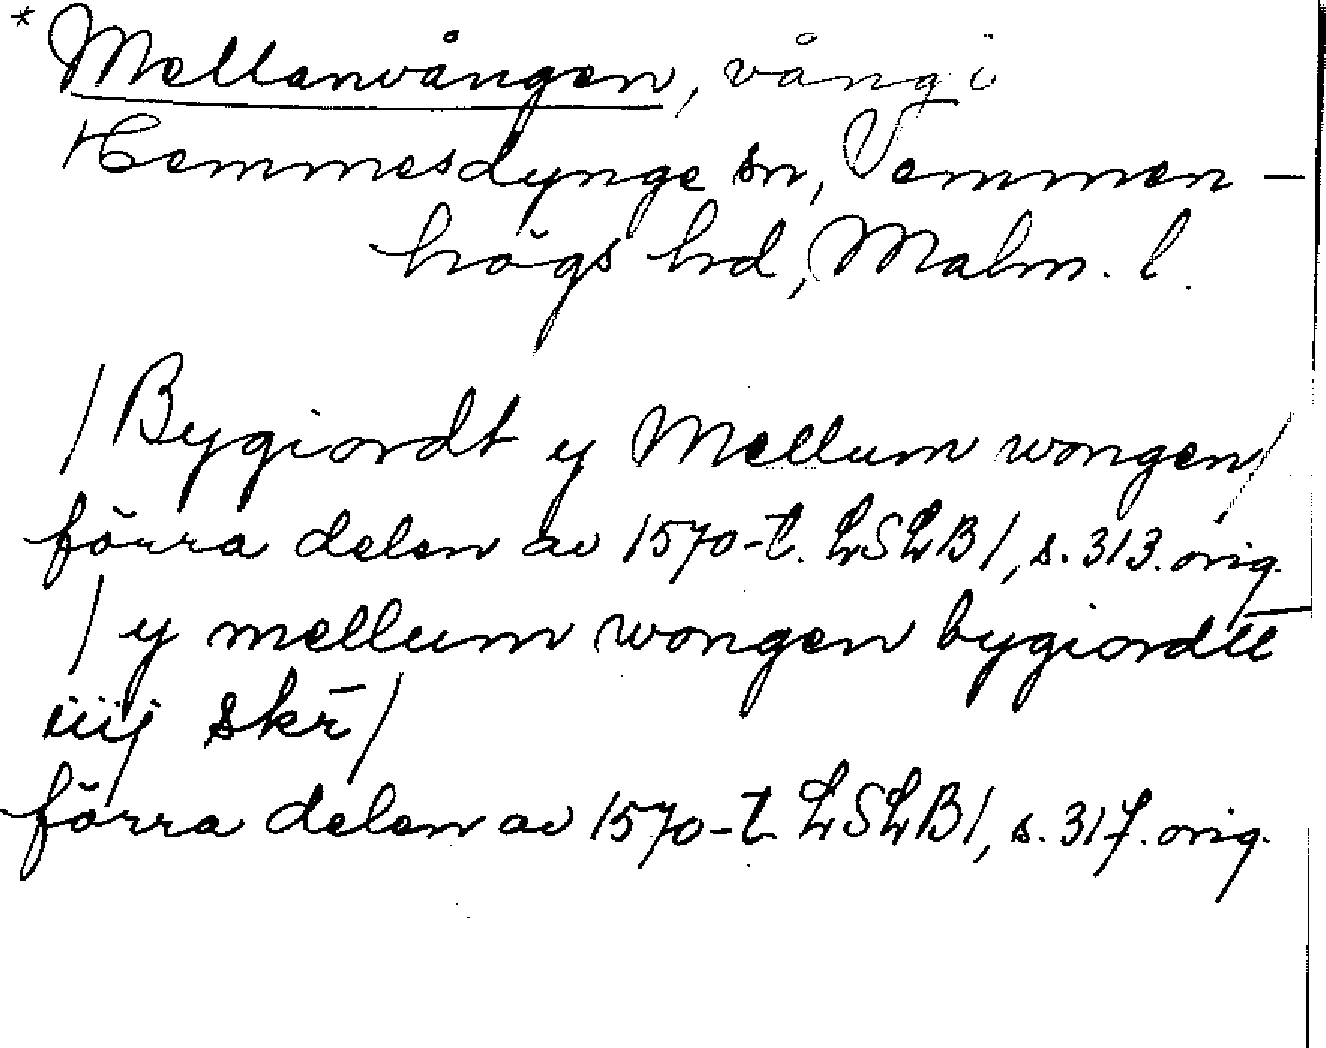 * Mellanvången, vång i
Hemmesdynge sn, Vemmen-
högs hd, Malm. l.
/Bygiordt y Mellum wongen/
förra delen av 1570-t. LSLB1, s. 313. orig.
/y mellum wongen bygiordtt
iiij skr̄/
förra delen av 1570-t LSLB1, s. 317. orig.